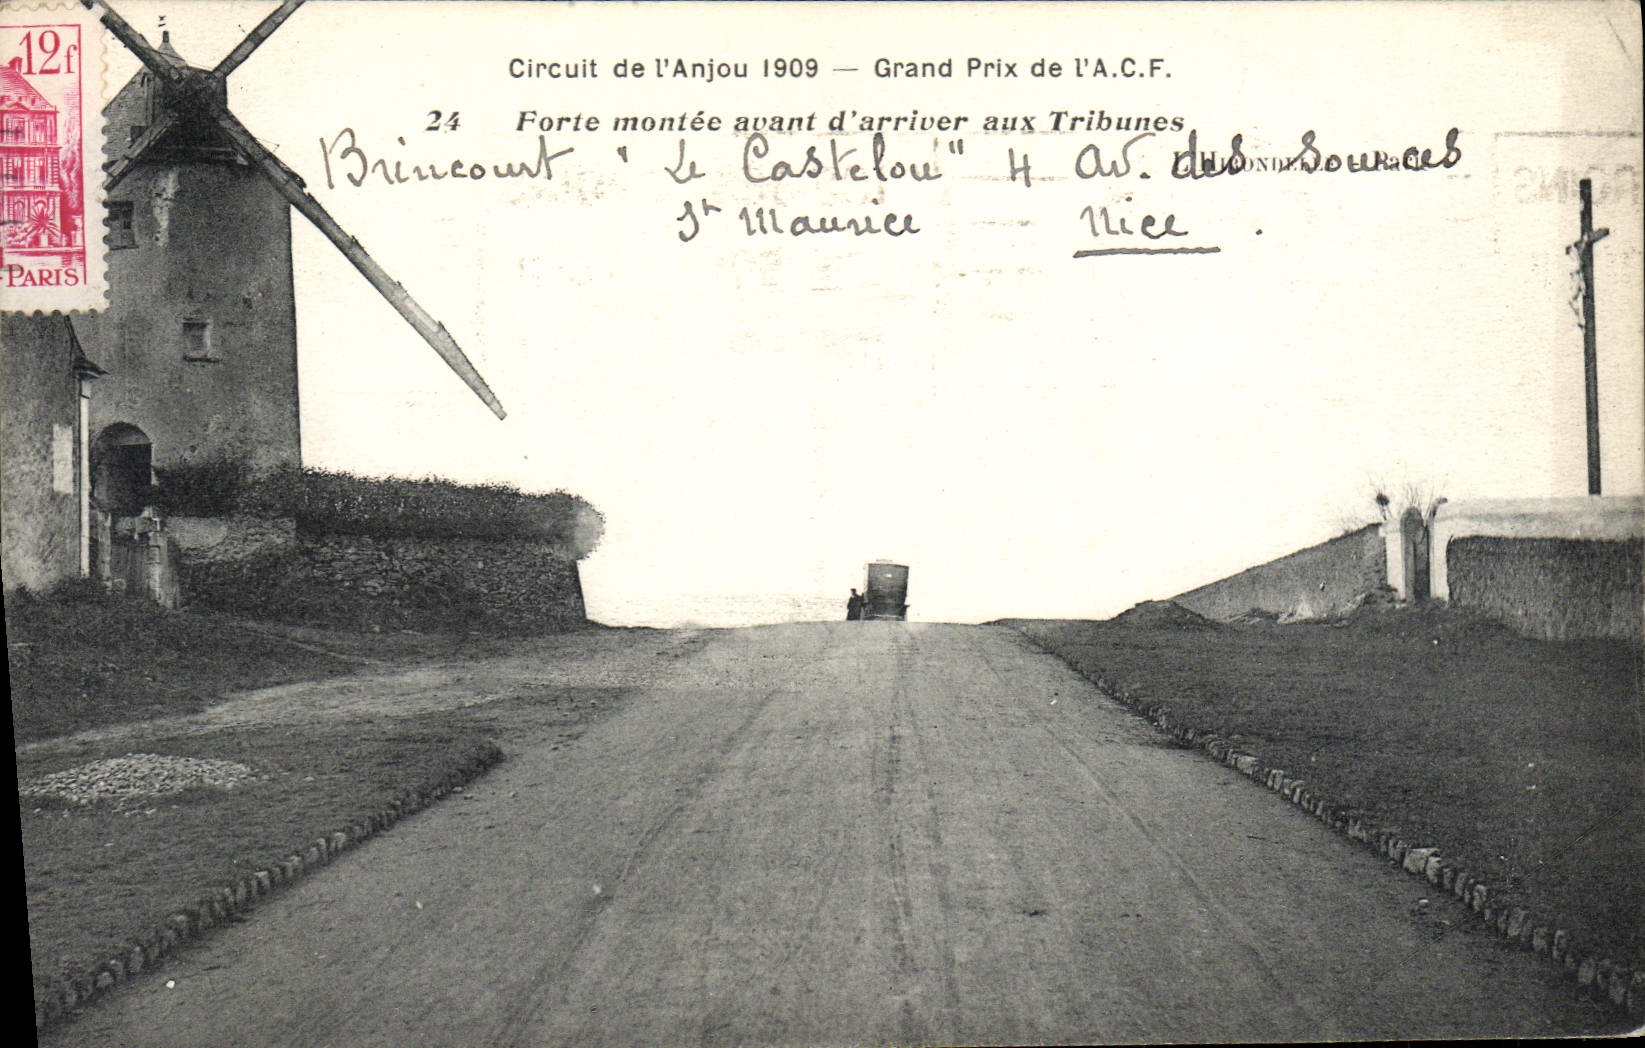 12f
PARIS
Circuit de l'Anjou 1909 — Grand Prix de l'A.C.F.
24 Forte montée avant d'arriver aux Tribunes
Brincourt "Le Castelou" 4 Av. des Sources
St Maurice Nice.